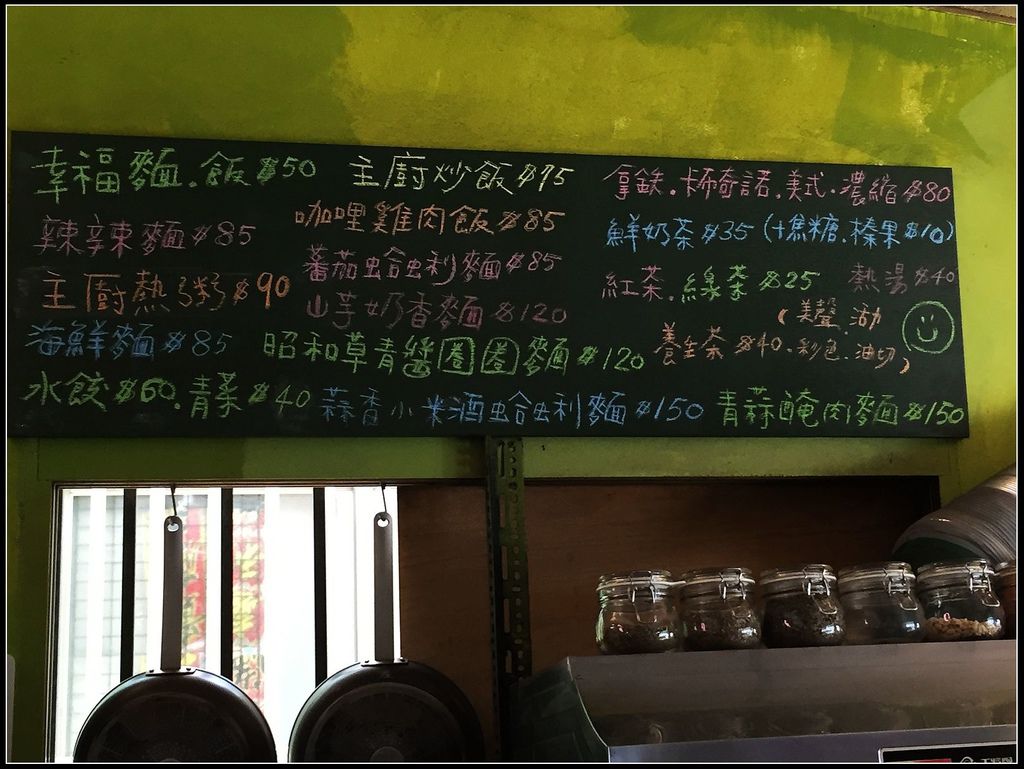 幸福麵.飯$50
主廚炒飯$95
拿鉄.卡布奇諾.美式.濃縮$80
辣辣麵$85
咖哩雞肉飯$85
鮮奶茶$35(+焦糖.榛果$10)
蕃茄蛤蜊麵$85
紅茶.綠茶$25
熱湯$40
主廚熱粥$90
山芋奶香麵$120
養生茶$40.彩色.油切,
(美聲.活力
海鮮麵$85
昭和草青醬圈圈麵$120
水餃$60.青菜$40
蒜香小米酒蛤蜊麵$150
青蒜醃肉麵$150